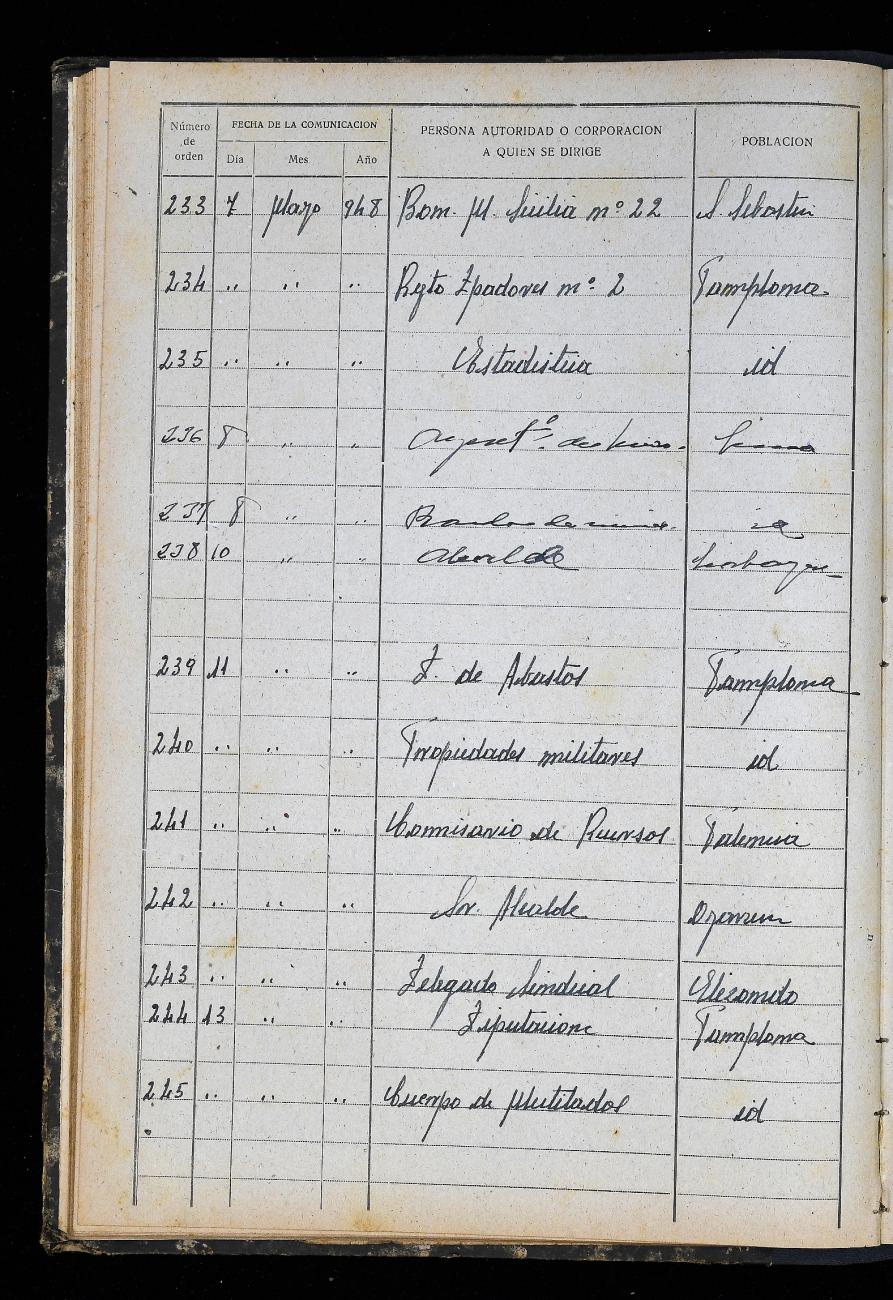 Número de orden FECHA DE LA COMUNICACION PERSONA AUTORIDAD O CORPORACION A QUIEN SE DIRIGE POBLACION
Día Mes Año
233 7 Marzo 948 Bom. M. Sicilia nº 22 S. Sebastin
234 .. .. .. Rgto Zpadores nº 2 Pamplona
235 .. .. .. Estadistica id
236 8 .. ..
237 8 .. .. id
238 10 .. .. Alcalde
239 11 .. .. D. de Abastos Pamplona
240 .. .. .. Propiedades militares id
241 .. .. .. Comisario de Recursos Palencia
242 .. .. .. Sr. Alcalde
243 .. .. .. Delegado Sindical Elizondo
244 13 .. .. Diputacion Pamplona
245 .. .. .. Cuerpo de Mutilados id